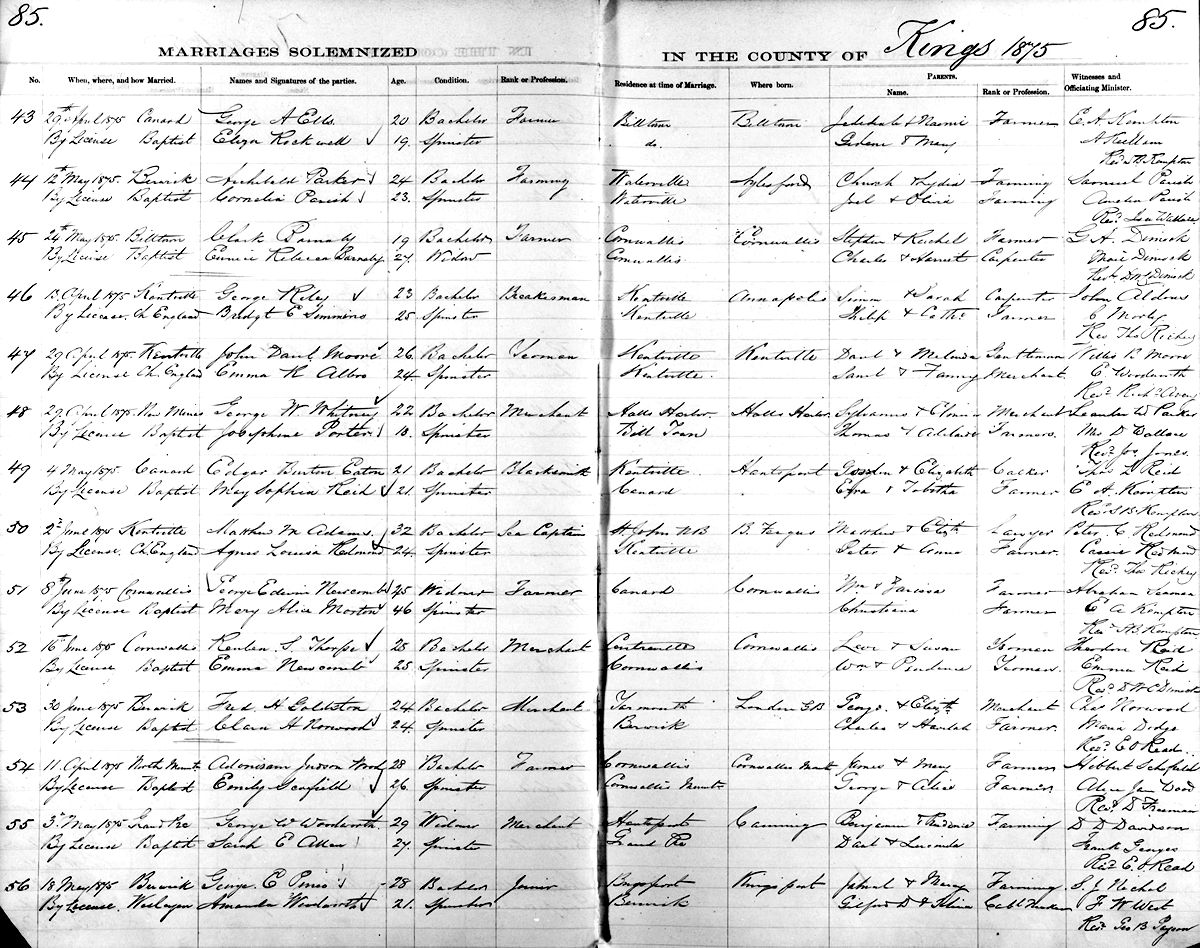 85. 85.
MARRIAGES SOLEMNIZED IN THE COUNTY OF Kings 1875
No. When, where, and how Married. Names and Signatures of the parties. Age. Condition. Rank or Profession. Residence at time of Marriage. Where born. PARENTS. Name. Rank or Profession. Witnesses and Officiating Minister.
43 April 1875 Canard George A Ells 20 Bachelor Farmer Billtown Billtown & Naomi Farmer E. A. Kempton
By License Baptist Eliza Rockwell 19. Spinster do. & Mary
Kempton
44 12th May 1875. Berwick Archibald Parker 24 Bachelor Farming Waterville Aylesford Church & Lydia Farming Samuel Parish
By License Baptist Cornelia Parish 23. Spinster Waterville Joel & Olivia Farming Parish
Wallace
45 24th May 1875 Billtown Clark Barnaby 19 Bachelor Farmer Cornwallis Cornwallis Stephen & Rachel Farmer G. A. Dimock
By License Baptist Eunice Rebecca Barnaby 27. Widow Cornwallis Charles & Harriet Carpenter Dimock
Dimock
46 April 1875 Kentville George Riley 23 Bachelor Breakesman Kentville Annapolis & Sarah Carpenter John
By License. Ch England Bridgt E Simmins 25 Spinster Kentville Philip & Farmer
Rev Thos Richey
47 29 April 1875 Kentville John Danl Moore 26. Bachelor Yeoman Kentville Kentville Danl & Melinda Gentleman Willis B Moore
By License Ch. England Emma R Albro 24. Spinster Kentville. Saml & Fanny Merchant. E Woodworth
Rev Richd Avery
48 29 April 1875 New Minas George W Whitney 22 Bachelor Merchant Halls Harbor. Halls Harbor Sylvanus & Merchant Leander W Parker
By License Baptist Josephine Porter Spinster Bill Town Thomas & Adelaide Farmers. D Wallace
Rev. Jones.
49 4 May 1875 Canard Edgar Burton Eaton 21 Bachelor Blacksmith Kentville Hantsport & Elizabeth Calker Reid
By License Baptist May Sophia Reid 21. Spinster Canard Ezra & Tabitha Farmer E A. Kempton
Kempton
50 June 1875 Kentville Matthew M Adams 32 Bachelor Sea Captain St John NB B. Fergus Matthew & Lawyer Peter C Redmond
By License. Ch England Agnes Louisa Redmond 24. Spinster Kentville Peter & Anna Farmer Cassie Redmond
Rev. Thos Richey
51 8th June 1875 Cornwallis George Edwin Newcomb 45 Widower Farmer Canard Cornwallis Wm & Farmer Abraham
By License Baptist Mary Alice Morton 46 Spinster Christiana Farmer E A Kempton
Kempton
52 16th June 1875 Cornwallis Reuben S. Thorpe 25 Bachelor Merchant Centreville Cornwallis Levi & Susan Yeoman Theodore Reid
By License Baptist Emma Newcomb 25 Spinster Cornwallis Wm & Prudence Yeoman Emma Reid
Rev D W C Dimock
53 30 June 1875 Berwick Fred H 24 Bachelor Merchant Yarmouth London GB George. & Merchant Chas Norwood
By License Baptist Clara H Norwood 24. Spinster Berwick Charles & Hannah Farmer. Maria Dodge
Rev. E O Read.
54 11. April 1875 North Mount Adoniram Judson Wood 28 Bachelor Farmer Cornwallis Cornwallis Mount James & Mary Farmer Hibbert Schofield
By License Baptist Emily 26. Spinster Cornwallis Mount. George & Alice Farmer Alice Jane Wood
Rev. D. Freeman
55 3 May 1875 Grand Pre George W Woodworth. 29 Widower Merchant Hantsport Canning Benjamin & Farming D D Davidson
By License Baptist Sarah E Allen 27. Spinster Grand Pre Danl & Lucinda Frank
Rev. E O Read
56 18 May 1875 Berwick George. E 28 Bachelor Joiner Kingsport & Mary Farming
By License. Wesleyan Amanda Woodworth 21. Spinster Berwick Gilford D & F. W West
Rev. Geo B Payson